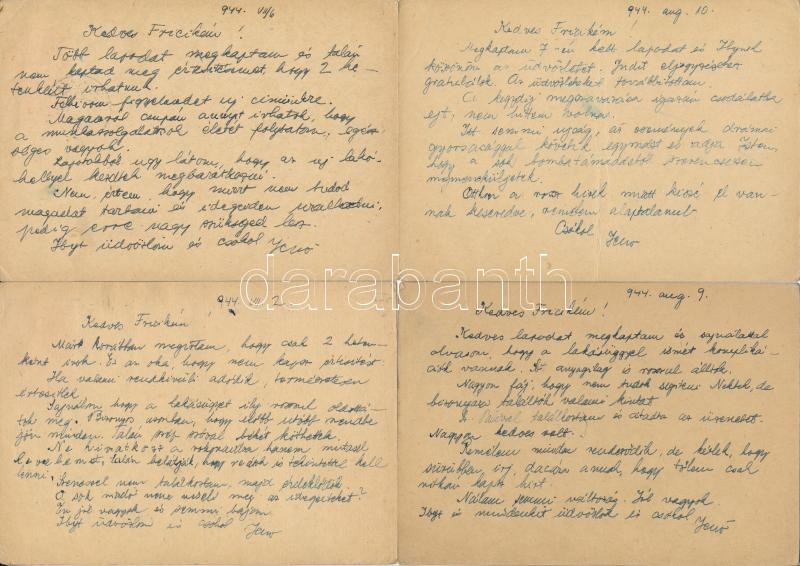 944. VII/6
Kedves Fricikém!
Több lapodat megkaptam és talán
nem kaptad meg értesítésemet, hogy 2 he-
tenként írhatunk.
Felhívom figyelmedet új címünkre.
Magamról csupán annyit írhatok, hogy
a munkaszolgálatosok életét folytatom, egész-
séges vagyok.
Lapodból úgy látom, hogy az új lakó-
hellyel kezdtek megbarátkozni.
Nem értem, hogy miért nem tudod
magadat tartani és idegeiden uralkodni,
pedig erre nagy szükséged lesz.
Ibyt üdvözlöm és csókol Jenő
944. aug. 10.
Kedves Fricikém!
Megkaptam 7-én kelt lapodat és Ibynek
köszönöm az üdvözletet. Judit eljegyzéséhez
gratulálok. Az üdvözleteket továbbítottam.
Ci megszavarása igazán csodálatba
ejt, nem hittem volna.
Itt semmi újság, az események drámai
gyorsasággal követik egymást és adja Isten,
hogy a sok bombatámadástól szerencsésen
megmeneküljetek.
Otthon a rossz hírek miatt kissé el van-
nak keseredve, remélem alaptalanul.
Csókol Jenő
darabanth
944. 2.
Kedves Fricikém!
Márt korábban megírtam, hogy csak 2 heten-
ként írok. Ez az oka, hogy nem kapsz értesítést.
Ha valami rendkívüli adódik, természetesen
értesítlek.
Sajnálom, hogy a lakásügyet így rosszul oldottá-
tok meg. Bizonyos vagyok, hogy előbb utóbb rendbe
jön minden. Talán szóval békét köthetek.
Ne hivatkozz a rokonaidra hanem mutasd
levelemet, talán belátják, hogy rád is tekintettel kell
lenni.
nem találkoztam, majd érdeklődök.
A sok madó nem viseli meg az idegeiteket?
Én jól vagyok és semmi bajom.
Ibyt üdvözlöm és csókol
Jenő
944. aug. 9.
Kedves Fricikém!
Kedves lapodat megkaptam és sajnálattal
olvasom, hogy a lakásüggyel ismét kompliká-
ciók vannak. anyagilag is rosszul álltok.
Nagyon fáj, hogy nem tudok segíteni Nektek, de
bizonyára találtok valami kiutat.
találkoztam és átadta az üzenetet.
Nagyon kedves volt!
Remélem minden rendeződik, de kérlek, hogy
sűrűbben írj, dacára annak, hogy tőlem csak
néhány kapsz hírt.
Nálam semmi változás. Jól vagyok.
Ibyt és mindenkit üdvözlök és csókol
Jenő